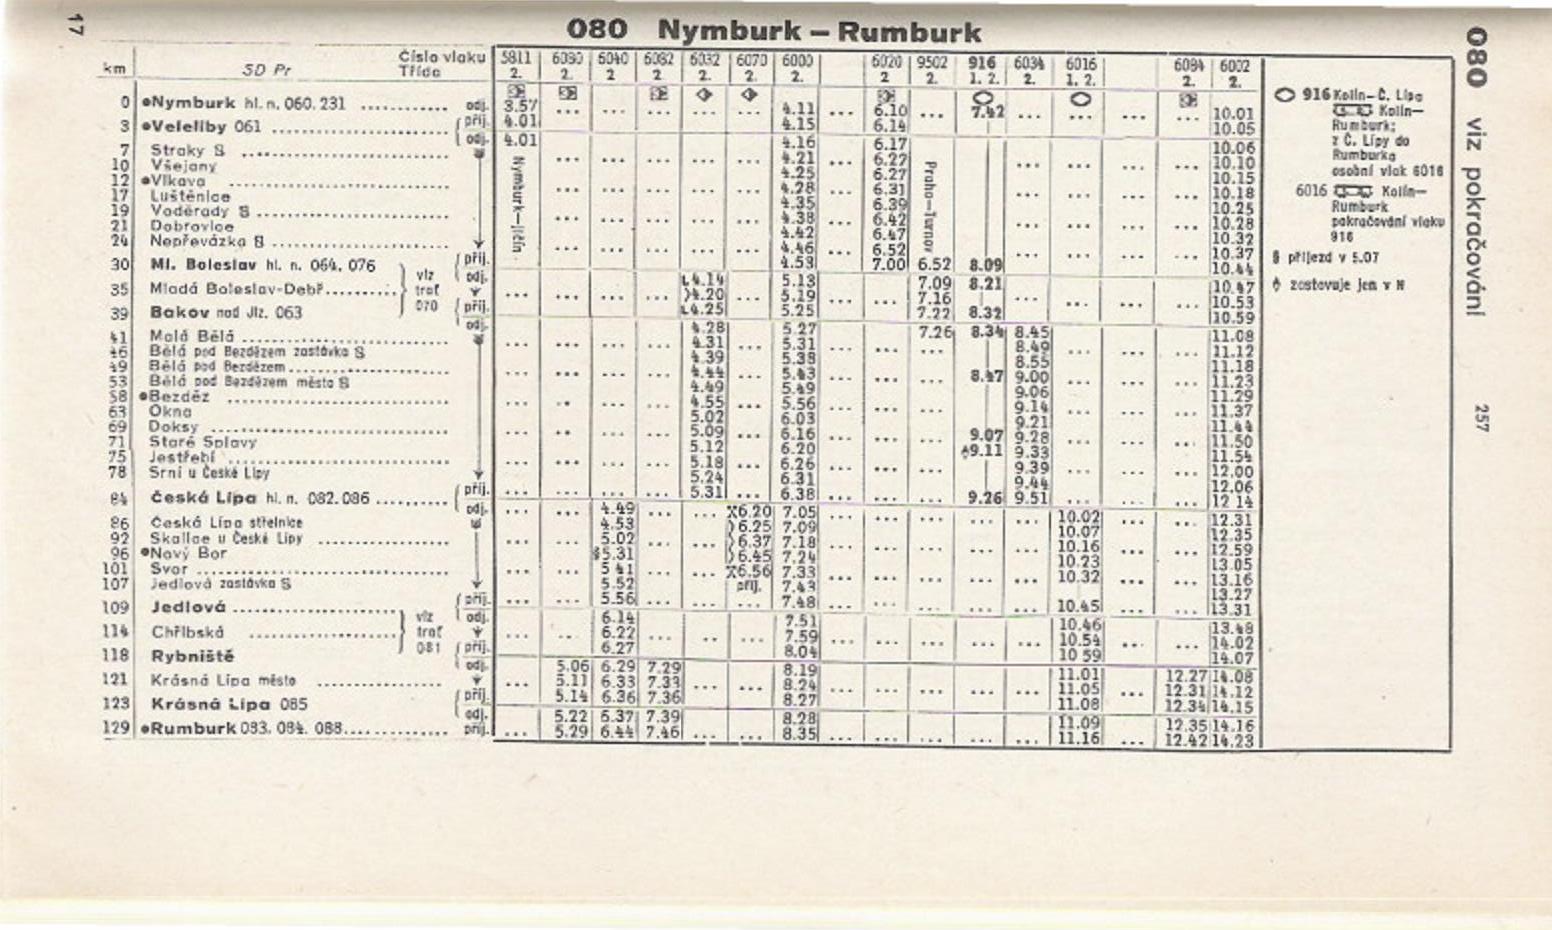 17
080 Nymburk – Rumburk
080 viz pokračování 257
km SD Pr Číslo vlaku 5811 6080 6040 6082 6032 6070 6000 6020 9502 916 6034 6016 6084 6002
Třída 2. 2. 2 2 2. 2. 2. 2 2. 1. 2. 2. 1. 2. 2. 2.
0 Nymburk hl. n. 060. 231 odj. 3.57 ... ... ... 4.11 ... 6.10 7.42 ... ... ... 10.01
3 Veleliby 061 příj. 4.01 4.15 6.14 10.05
odj. 4.01 4.16 6.17 10.06
7 Straky S 4.21 6.27 10.10
10 Všejany 4.25 6.27 10.15
12 Vlkava 4.28 6.31 10.18
17 Luštěnice 4.35 6.39 10.25
19 Voděrady S 4.38 6.42 10.28
21 Dobrovice 4.42 6.47 10.32
24 Nepřevázka S 4.46 6.52 10.37
Nymburk—Jičín
Praha—Turnov
30 Ml. Boleslav hl. n. 064. 076 příj. 4.53 7.00 6.52 8.09 10.44
viz trať 070
odj. 4.14 5.13 7.09 8.21 10.47
35 Mladá Boleslav-Debř 4.20 5.19 7.16 10.53
39 Bakov nad Jiz. 063 příj. 4.25 5.25 7.22 8.32 10.59
odj. 4.28 5.27 7.26 8.34 8.45 11.08
41 Malá Bělá 4.31 5.31 8.49 11.12
46 Bělá pod Bezdězem zastávka S 4.39 5.38 8.55 11.18
49 Bělá pod Bezdězem 4.44 5.43 8.47 9.00 11.23
53 Bělá pod Bezdězem město S 4.49 5.49 9.06 11.29
58 Bezděz 4.55 5.56 9.14 11.37
63 Okna 5.02 6.03 9.21 11.44
69 Doksy 5.09 6.16 9.07 9.28 11.50
71 Staré Splavy 5.12 6.20 9.11 9.33 11.54
75 Jestřebí 5.18 6.26 9.39 12.00
78 Srní u České Lípy 5.24 6.31 9.44 12.06
84 Česká Lípa hl. n. 082.086 příj. 5.31 6.38 9.26 9.51 12 14
odj. 4.49 6.20 7.05 10.02 12.31
86 Česká Lípa střelnice 4.53 6.25 7.09 10.07 12.35
92 Skalice u České Lípy 5.02 6.37 7.18 10.16 12.59
96 Nový Bor §5.31 6.45 7.24 10.23 13.05
101 Svor 5 41 6.56 7.33 10.32 13.16
107 Jedlová zastávka S 5.52 příj. 7.43 13.27
109 Jedlová příj. 5.56 7.48 10.45 13.31
viz trať 081
odj. 6.14 7.51 10.46 13.48
114 Chřibská 6.22 7.59 10.54 14.02
118 Rybniště příj. 6.27 8.04 10 59 14.07
odj. 5.06 6.29 7.29 8.19 11.01 12.27 14.08
121 Krásná Lípa město 5.11 6.33 7.33 8.24 11.05 12.31 14.12
123 Krásná Lípa 085 příj. 5.14 6.36 7.36 8.27 11.08 12.34 14.15
odj. 5.22 6.37 7.39 8.28 11.09 12.35 14.16
129 Rumburk 083. 084. 088 příj. 5.29 6.44 7.46 8.35 11.16 12.42 14.23
916 Kolín–Č. Lípa
Kolín–
Rumburk;
z Č. Lípy do
Rumburka
osobní vlak 6016
6016 Kolín–
Rumburk
pokračování vlaku
916
§ příjezd v 5.07
zastavuje jen v N